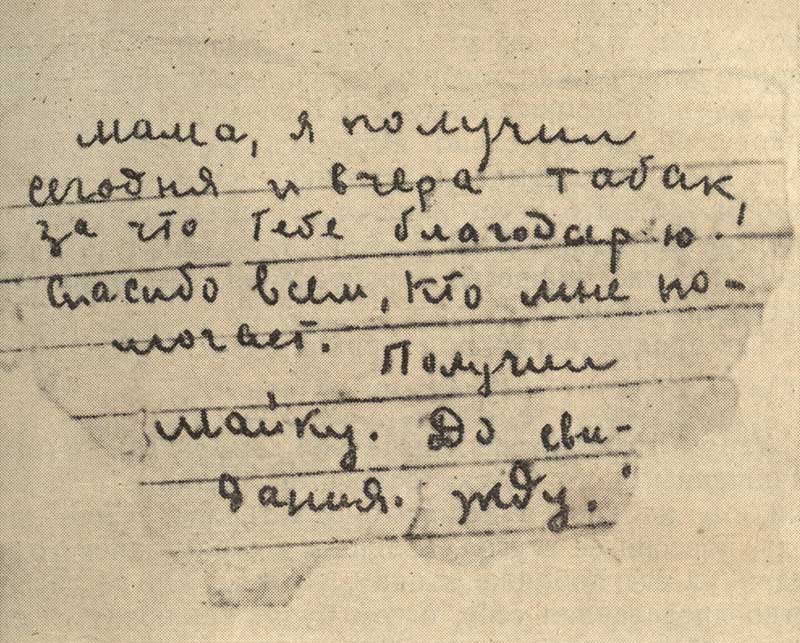 мама, я получил
сегодня и вчера табак,
за что тебе благодарю.
Спасибо всем, кто мне по-
могает. Получил
майку. До сви-
дания. жду.